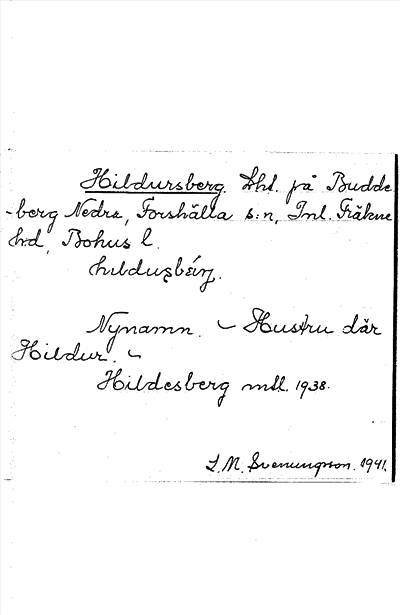 Hildursberg. Lht. på Budde
-berg Nedra, Forshälla s:n, Inl. Fräkne
hd, Bohus l.
Nynamn. – Hustru där
Hildur. –
Hildesberg mtl. 1938.
S. M. Svenungsson. 1941.